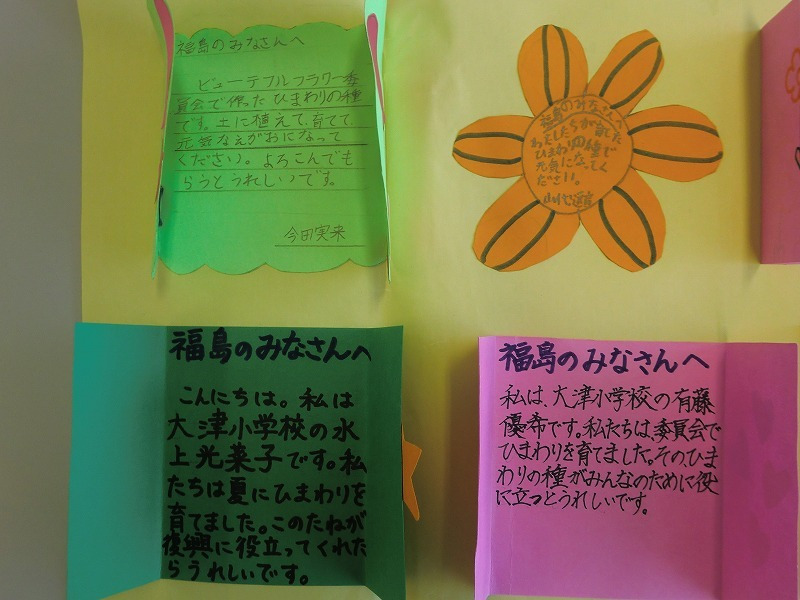 福島のみなさんへ
ビューテフルフラワー委
員会で作ったひまわりの種
です。土に植えて、育てて、
元気なえがおになって
ください。よろこんでも
らうとうれしいです。
今田実来
福島のみなさんへ
わたしたちが育した
ひまわりの種で
元気になってく
ださい。
福島のみなさんへ
こんにちは。私は
大津小学校の水
上光菜子です。私
たちは夏にひまわりを
育てました。このたねが
復興に役立ってくれた
らうれしいです。
福島のみなさんへ
私は、大津小学校の有藤
優希です。私たちは、委員会で
ひまわりを育てました。その、ひま
わりの種がみんなのために役
に立つとうれしいです。